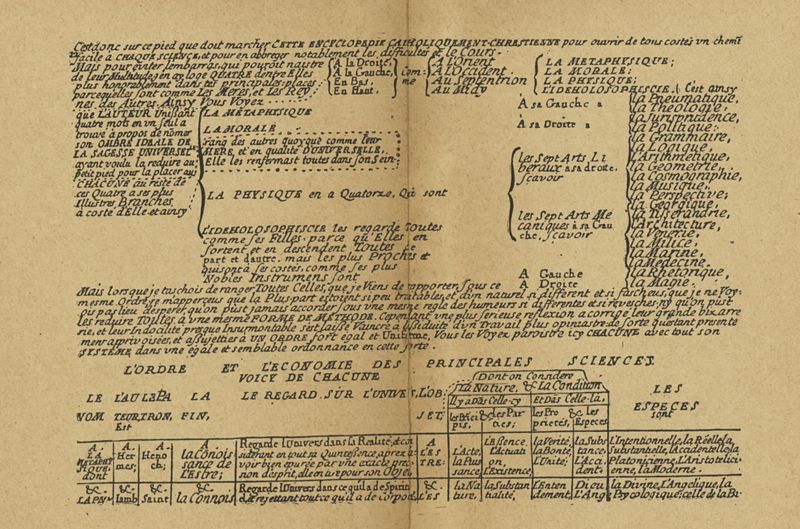 C'est donc sur ce pied que doit marcher CETTE ENCYCLOPEDIE CATHOLIQUEMENT-CHRESTIENNE pour ouvrir de tous costés un chemi
facile à CHAQUE SCIENCE et pour en abreger notablement les difficultes et le Cours.
Mais pour eviter l'embarras, qui pouroit naitre
de leur Multitude; en ay logé QUATRE d'entre Elles
plus honorablement dans les principales places
parcequ'elles sont comme les Meres, et les Rey
nes, des Autres. Ainsy Vous Voyez
A la Droite,
A la Gauche,
En Bas,
En Haut,
Com:
me
A l'Orient
A l'Occident
Au Septentrion
Au Midy
LA METAPHYSIQUE;
LA MORALE;
LA PHYSIQUE;
L'IDEHOLOSOPHISCIE; C'est ainsy
que L'AUTEUR Unissant
quatre mots en un seul a
trouvé à propos de nomer
son OMBRE IDEALE DE
LA SAGESSE UNIVERSEL
ayant voulu la reduire au
petit pied pour la placer aux
CHACUNE au reste de
ces Quatre a ses plus
Illustres Branches
à costé d'Elle et ainsy
LA METAPHYSIQUE
LA MORALE
rang des autres quoy que comme leur
MERE, et en qualité D'UNIVERSELLE,
Elle les renfermast toutes dans son Sein:
LA PHYSIQUE en a Quatorze, Qui sont
L'IDEHOLOSOPHISCIE les regarde Toutes
comme ses Filles. parce qu'Elles en
sortent et en descendent Toutes de
part et d'autre. mais les plus Proches et
qui sont à ses costés, comme ses plus
Nobles Instrumens sont
A sa Gauche
A sa Droite
les Sept Arts Li
beraux a sa droite,
sçavoir
les Sept Arts Me
caniques à sa Gau
che, sçavoir
A Gauche
A Droite
la Pneumatique,
la Theologie,
la Jurisprudence,
la Politique:
la Grammaire,
la Logique,
l'Arithmetique,
la Geometrie,
la Cosmographie,
la Musique,
la Perspective;
la Georgique,
la Tisserandrie,
l'Architecture,
la Venerie,
la Milice,
la Marine,
la Medecine.
la Rhetorique,
la Magie.
Mais lorsque je taschois de ranger Toutes Celles, que je Viens de rapporter, sous ce
mesme Ordre, je m'apperceus que la Plus-part estoient si peu traitables, et d'un naturel si different et si fascheus, que je ne Voy-
ois pas lieu d'esperer, qu'on pust jamais accorder sous une mesme regle des humeurs si differentes et si revesches, ny qu'on pust
les reduire TOUTES à une mesme FORME DE METHODE. Cependant une plus serieuse reflexion a corrigé leur grande bizarre
rie, et leur Indocilité presque Insurmontable s'est laissé Vaincre à l'assiduité d'un Travail plus opiniastre de sorte qu'estant presente
ment apprivoisées, et assujetties à UN ORDRE fort egal et Uniforme, Vous les Voyez paroistre icy CHACUNE avec tout son
SYSTÉME dans une égale et semblable ordonnance en cette sorte.
L'ORDRE ET L'ECONOMIE DES PRINCIPALES SCIENCES
VOICY DE CHACUNE
Dont on Considère
la Nature, & la Condition
LE L'AU LE PA LA LE REGARD SUR L'UNIVERS, L'OB:
NOM TEUR, TRON, FIN, JET:
Est
Il y à Dans Celle-cy
Et Dàs Celle-là,
les Prĩci
pis,
& les Par
ties;
les Pro
prietés,
& les
Especes
LES
ESPECES
sont
A.
LA
METAPHY
SIQUE:
dont
A.
Her
mes;
A.
Heno
ch;
A.
la Conois
sance de
l'Estre;
Regarde l'Univers dans sa Realité; & co
siderant en tout sa Quintessence, apres a
voir bien epurée par une exacte preci
sion d'esprit, elle en a pour son Objet
A
L'ES
TRE:
L'Acte,
la Puis
sance,
L'Essence,
L'Actuati
on,
L'Existence,
la Verité,
la Bonté
L'Unité;
la Subs
tance,
L'Acci
dent.
L'Intentionnelle, la Réelle, la
Substantielle, l'Accidentelle, la
Platonicienne, L'Aristotelici
enne, la Moderne.
&.
LA PN
&.
Iamb
&.
Saint
&.
la Connois
Regarde l'Univers dans ce qu'il a de Spirit
et rejettant tout ce qu'il a de corpor
&.
L'ES
la Na
ture,
la Substan
tialité,
L'Enten
dement,
Dieu
L'Ange
la Divine, L'Angelique, la
Psycologique: celle de la Bi